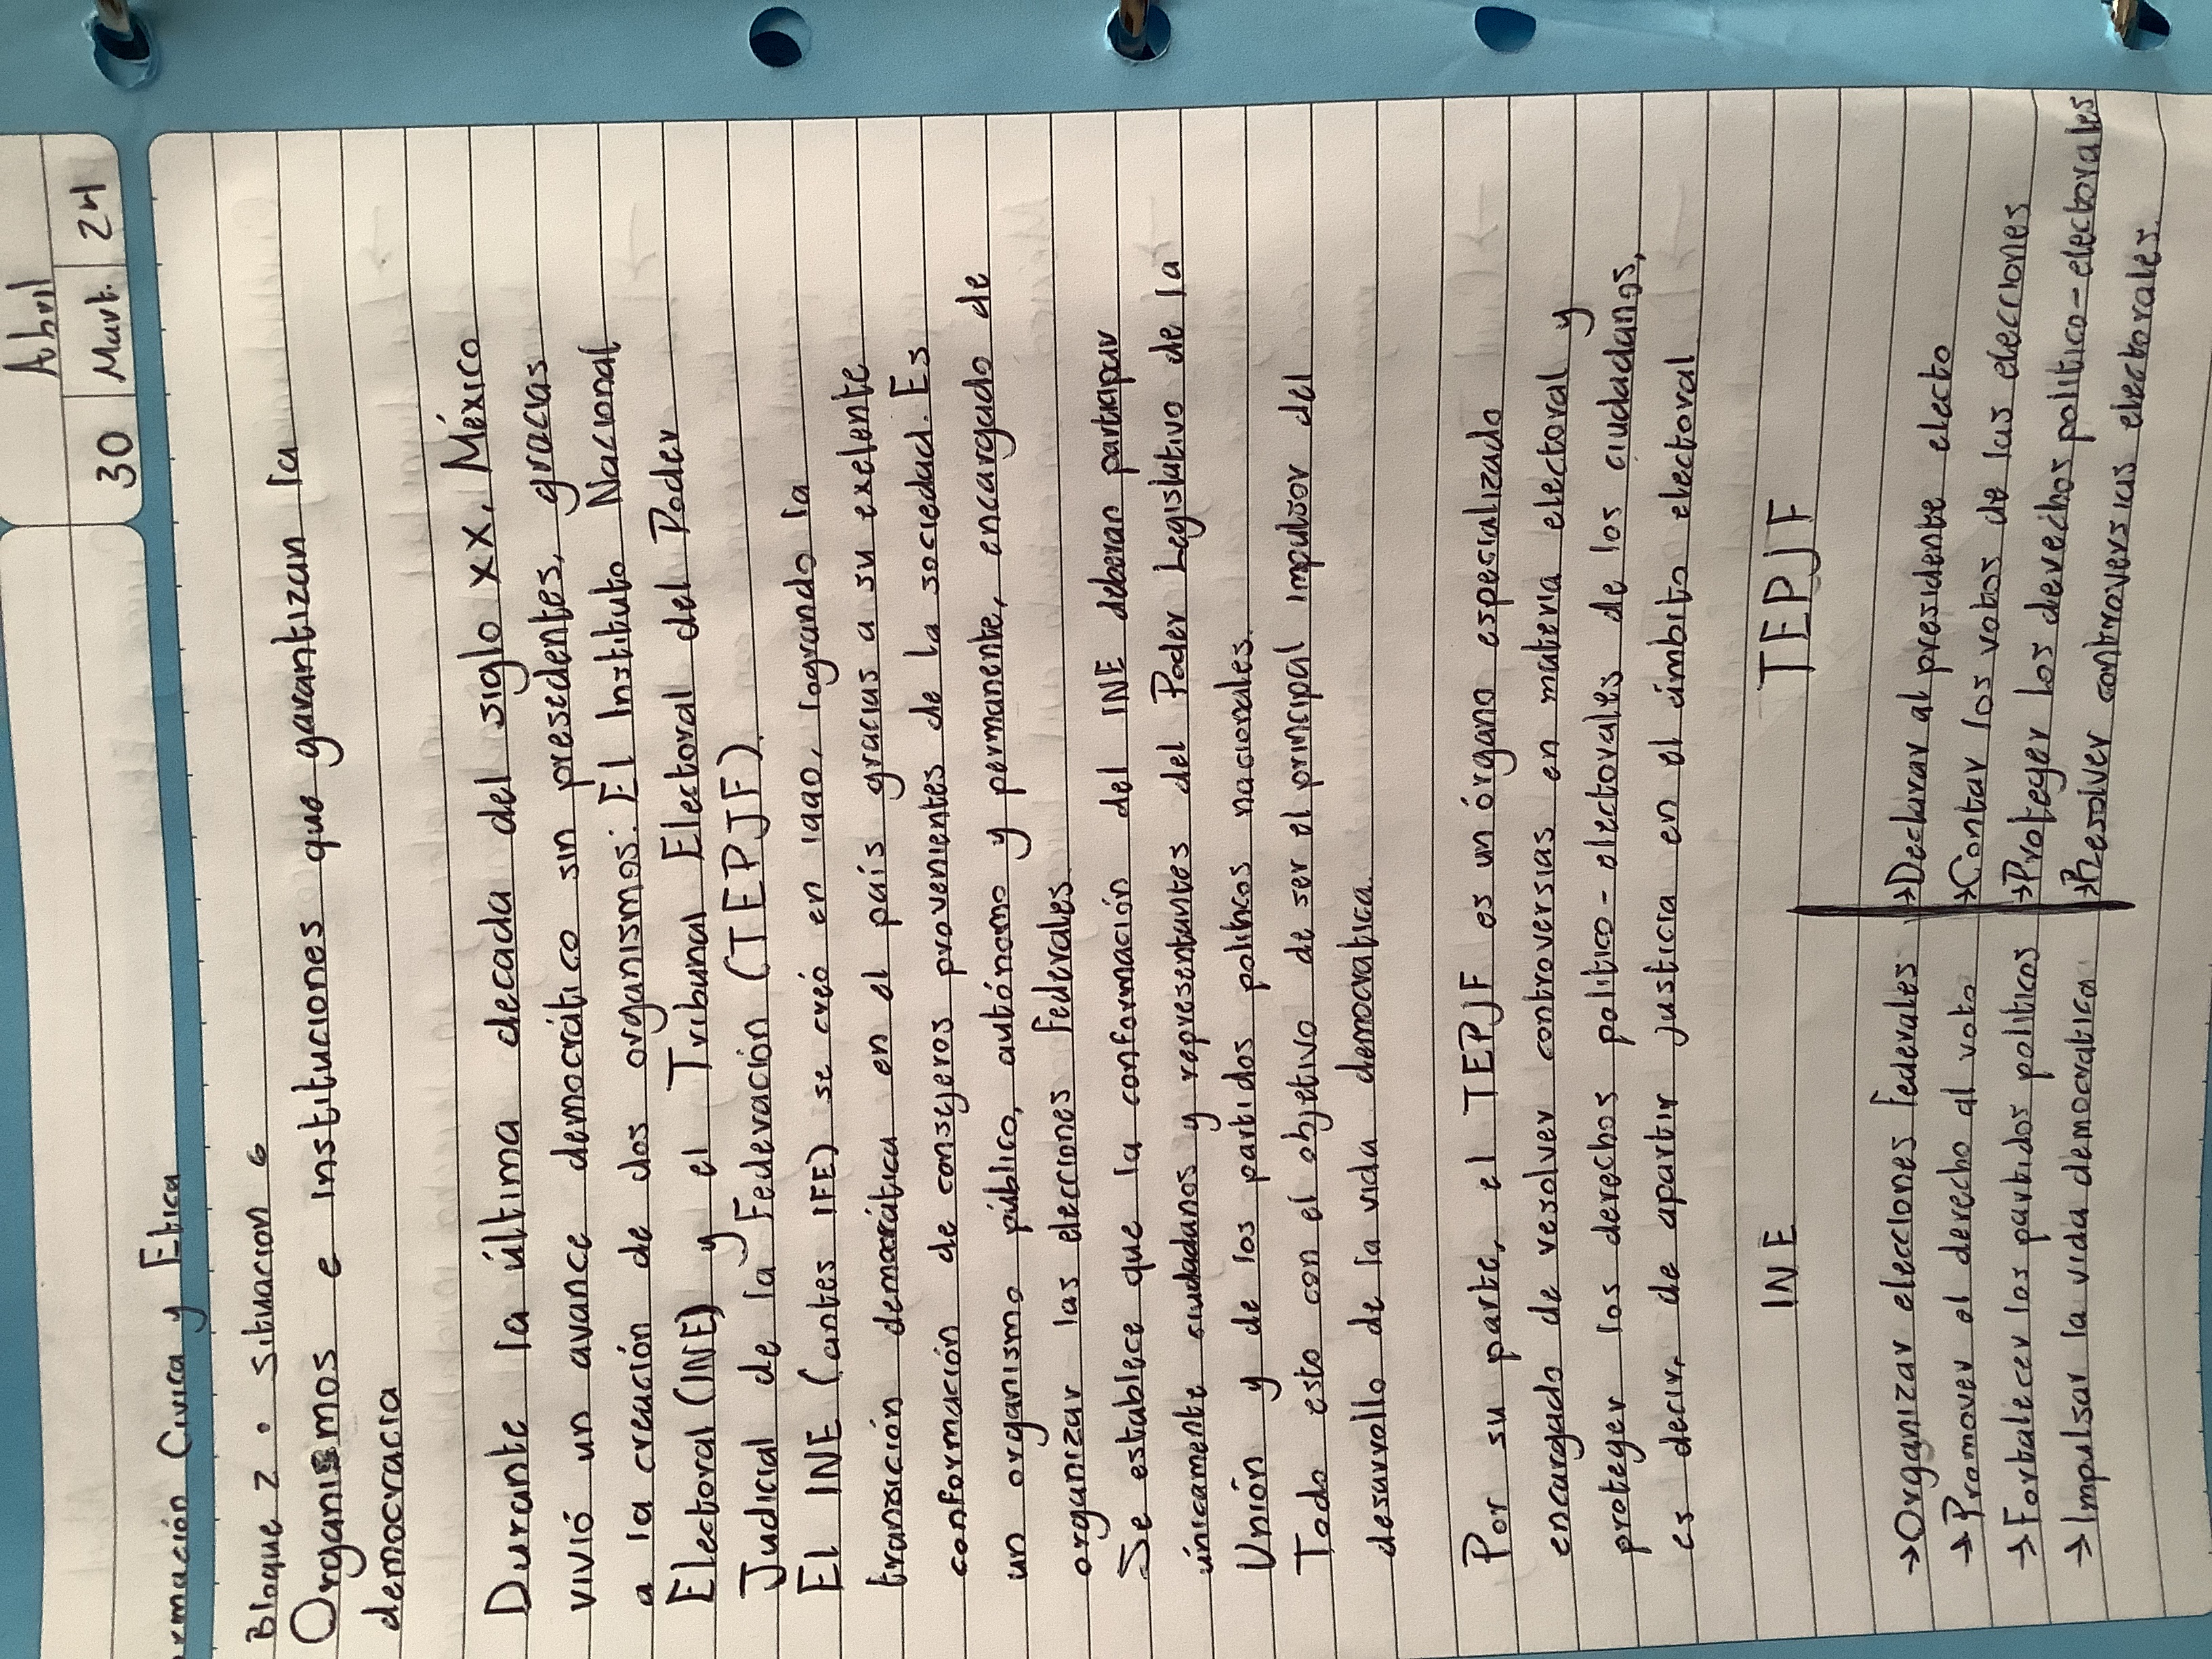 Abril
30 Mart. 24
rmación Civica y Etica
Bloque 2 • situacion 6
Organismos e instituciones que garantizan la
democracia
Durante la última decada del siglo XX, México
vivió un avance democrático sin presedentes, gracias
a la creación de dos organismos: El Instituto Nacional
Electoral (INE) y el Tribunal Electoral del Poder
Judicial de la Federación (TEPJF).
El INE (antes IFE) se creó en 1990, logrando la
transición democrática en el país gracias a su exelente
conformación de consejeros provenientes de la sociedad. Es
un organismo público, autónomo y permanente, encargado de
organizar las elecciones Federales.
Se establece que la conformación del INE deberan participar
únicamente ciudadanos y representantes del Poder Legislativo de la
Unión y de los partidos politicos nacionales.
Todo esto con el objetivo de ser el principal impulsor del
desarrollo de la vida democratica.
Por su parte, el TEPJF es un órgano especializado
encargado de resolver controversias en materia electoral y
proteger los derechos politico-electorales de los ciudadanos,
es decir, de apartir justicia en el ámbito electoral
INE TEPJF
→Organizar elecciones Federales →Declarar al presidente electo
→Promover el derecho al voto →Contar los votos de las elecciones
→Fortalecer los partidos politicos →Proteger los derechos politico-electorales
→Impulsar la vida democratica →Resolver controversias electorales.